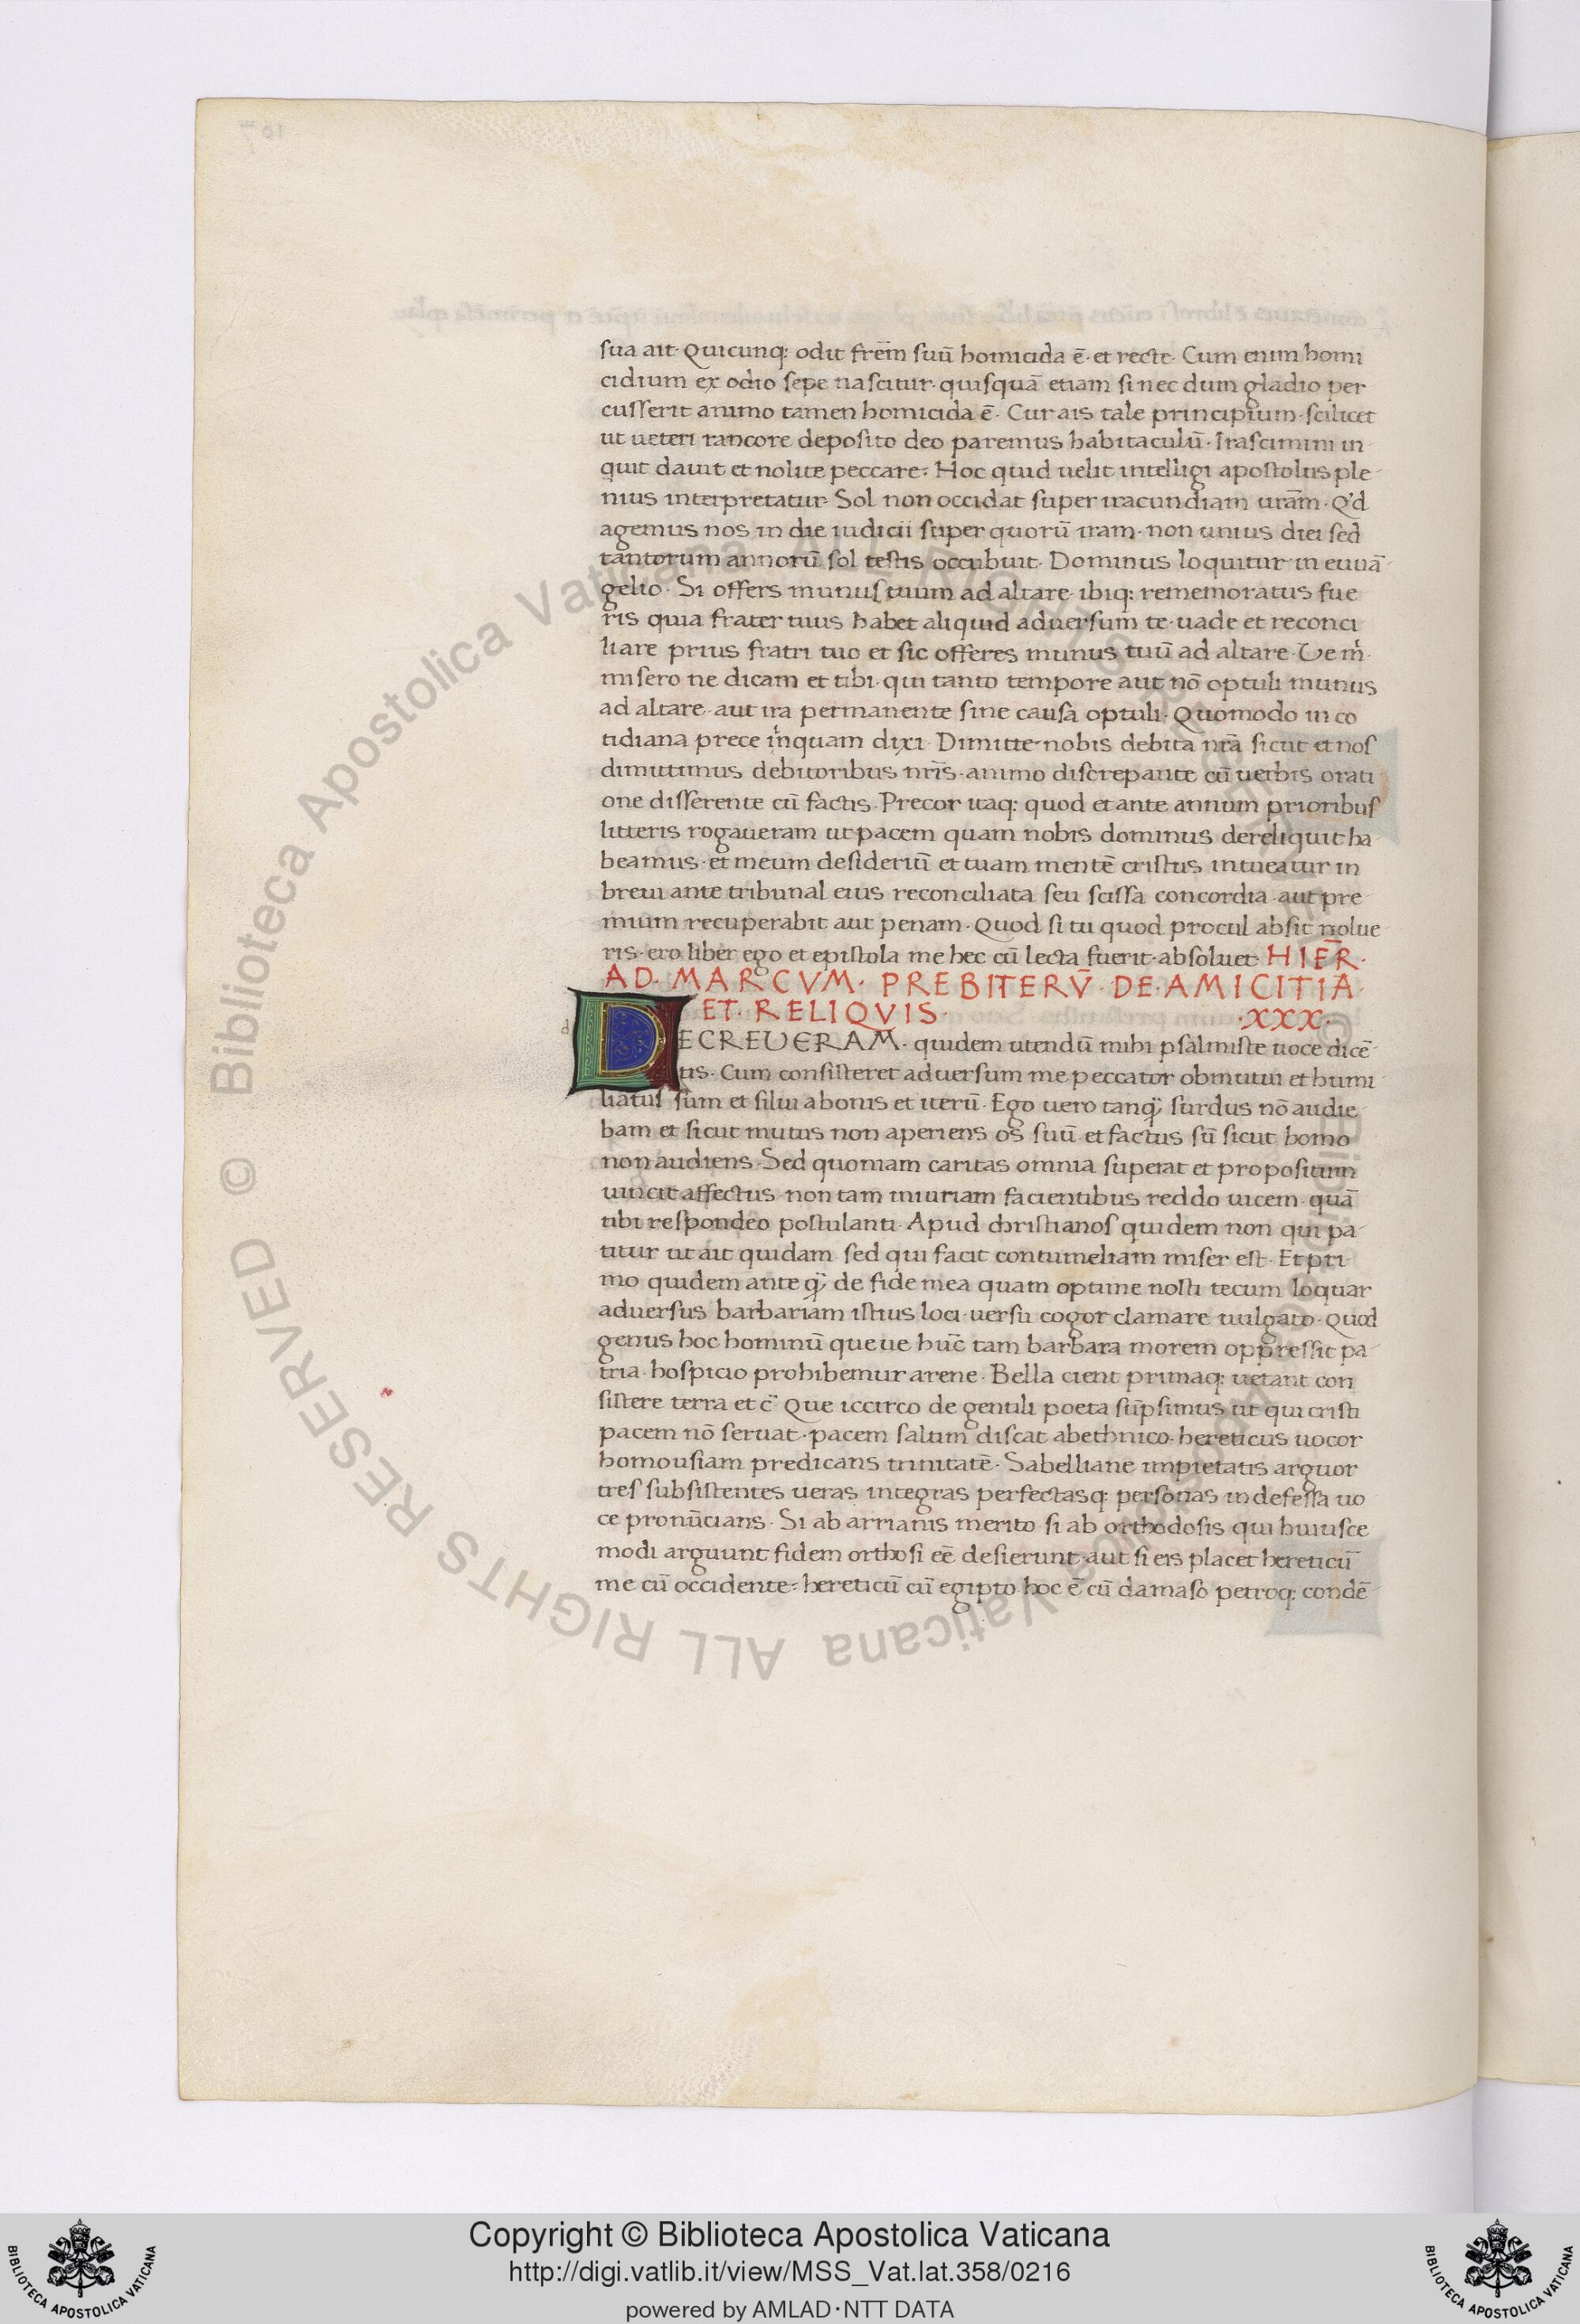 sua ait· Quicunq: odit frēm suū homicida ē· et recte· Cum enim homi
cidium ex odio sepe nascitur· quisquā etiam si nec dum gladio per
cusserit animo tamen homicida ē· Cur ais tale principium· scilicet
ut ueteri rancore deposito deo paremus habitaculū· Irascimini in
quit dauit et nolite peccare: Hoc quid uelit intelligi apostolus ple
nius interpretatur· Sol non occidat super iracundiam urām· Q'd
agemus nos in die iudicii super quorū iram· non unius diei sed
tantorum annorū sol testis occubuit· Dominus loquitur in euuā
gelio· Si offers munus tuum ad altare· ibiq: rememoratus fue
ris quia frater tuus habet aliquid aduersum te· uade et reconci
liare prius fratri tuo et sic offeres munus tuū ad altare· Ve m̍·
misero ne dicam et tibi· qui tanto tempore aut nō optuli munus
ad altare· aut ira permanente sine causa optuli· Quomodo in co
tidiana prece inquam dixi· Dimitte nobis debita nrā sicut et nos
dimittimus debitoribus nrīs· animo discrepante cū uerbis orati
one differente cū factis· Precor itaq: quod et ante annum prioribus
litteris rogaueram ut pacem quam nobis dominus dereliquit ha
beamus· et meum desideriū et tuam mentē cristus intueatur in
breui ante tribunal eius reconciliata seu scissa concordia· aut pre
mium recuperabit aut penam· Quod si tu quod procul absit nolue
ris· ero liber ego et epistola me hec cū lecta fuerit· absoluet· HIER̄·
AD· MARCVM· PREBITERV̄· DE· AMICITIA·
ET· RELIQVIS· ·XXX·
d
DECREUERAM· quidem utendū mihi psalmiste uoce dicē
tis· Cum consisteret aduersum me peccator obmutui et humi
liatus sum et silui a bonis et iterū· Ego uero tanq̄ surdus nō audie
bam et sicut mutus non aperiens os suū· et factus sū sicut homo
non audiens· Sed quoniam caritas omnia superat et propositum
uincit affectus· non tam iniuriam facientibus reddo uicem· quā
tibi respondeo postulanti· Apud christianos quidem non qui pa
titur ut ait quidam· sed qui facit contumeliam miser est· Et pri
mo quidem ante q̄ de fide mea quam optime nosti tecum loquar
aduersus barbariam istius loci· uersu cogor clamare uulgato· Quod
genus hoc hominū que ue hūc tam barbara morem oppressit pa
tria· hospicio prohibemur arene· Bella cient primaq: uetant con
sistere terra et c̄ Que iccirco de gentili poeta sūpsimus ut qui cristi
pacem nō seruat· pacem saltim discat ab ethnico· hereticus uocor
homousiam predicans trinitatē· Sabelliane impietatis arguor
tres subsistentes ueras integras perfectasq: personas indefessa uo
ce pronūcians· Si ab arrianis merito· si ab orthodosis qui huiusce
modi arguunt fidem orthosi eē desierunt· aut si eis placet hereticū
me cū occidente: hereticū cū egipto hoc ē cū damaso petroq: condē
Copyright © Biblioteca Apostolica Vaticana
http://digi.vatlib.it/view/MSS_Vat.lat.358/0216
powered by AMLAD·NTT DATA
BIBLIOTECA APOSTOLICA VATICANA
BIBLIOTECA APOSTOLICA VATICANA
© Biblioteca Apostolica Vaticana ALL RIGHTS RESERVED
© Biblioteca Apostolica Vaticana ALL RIGHTS RESERVED